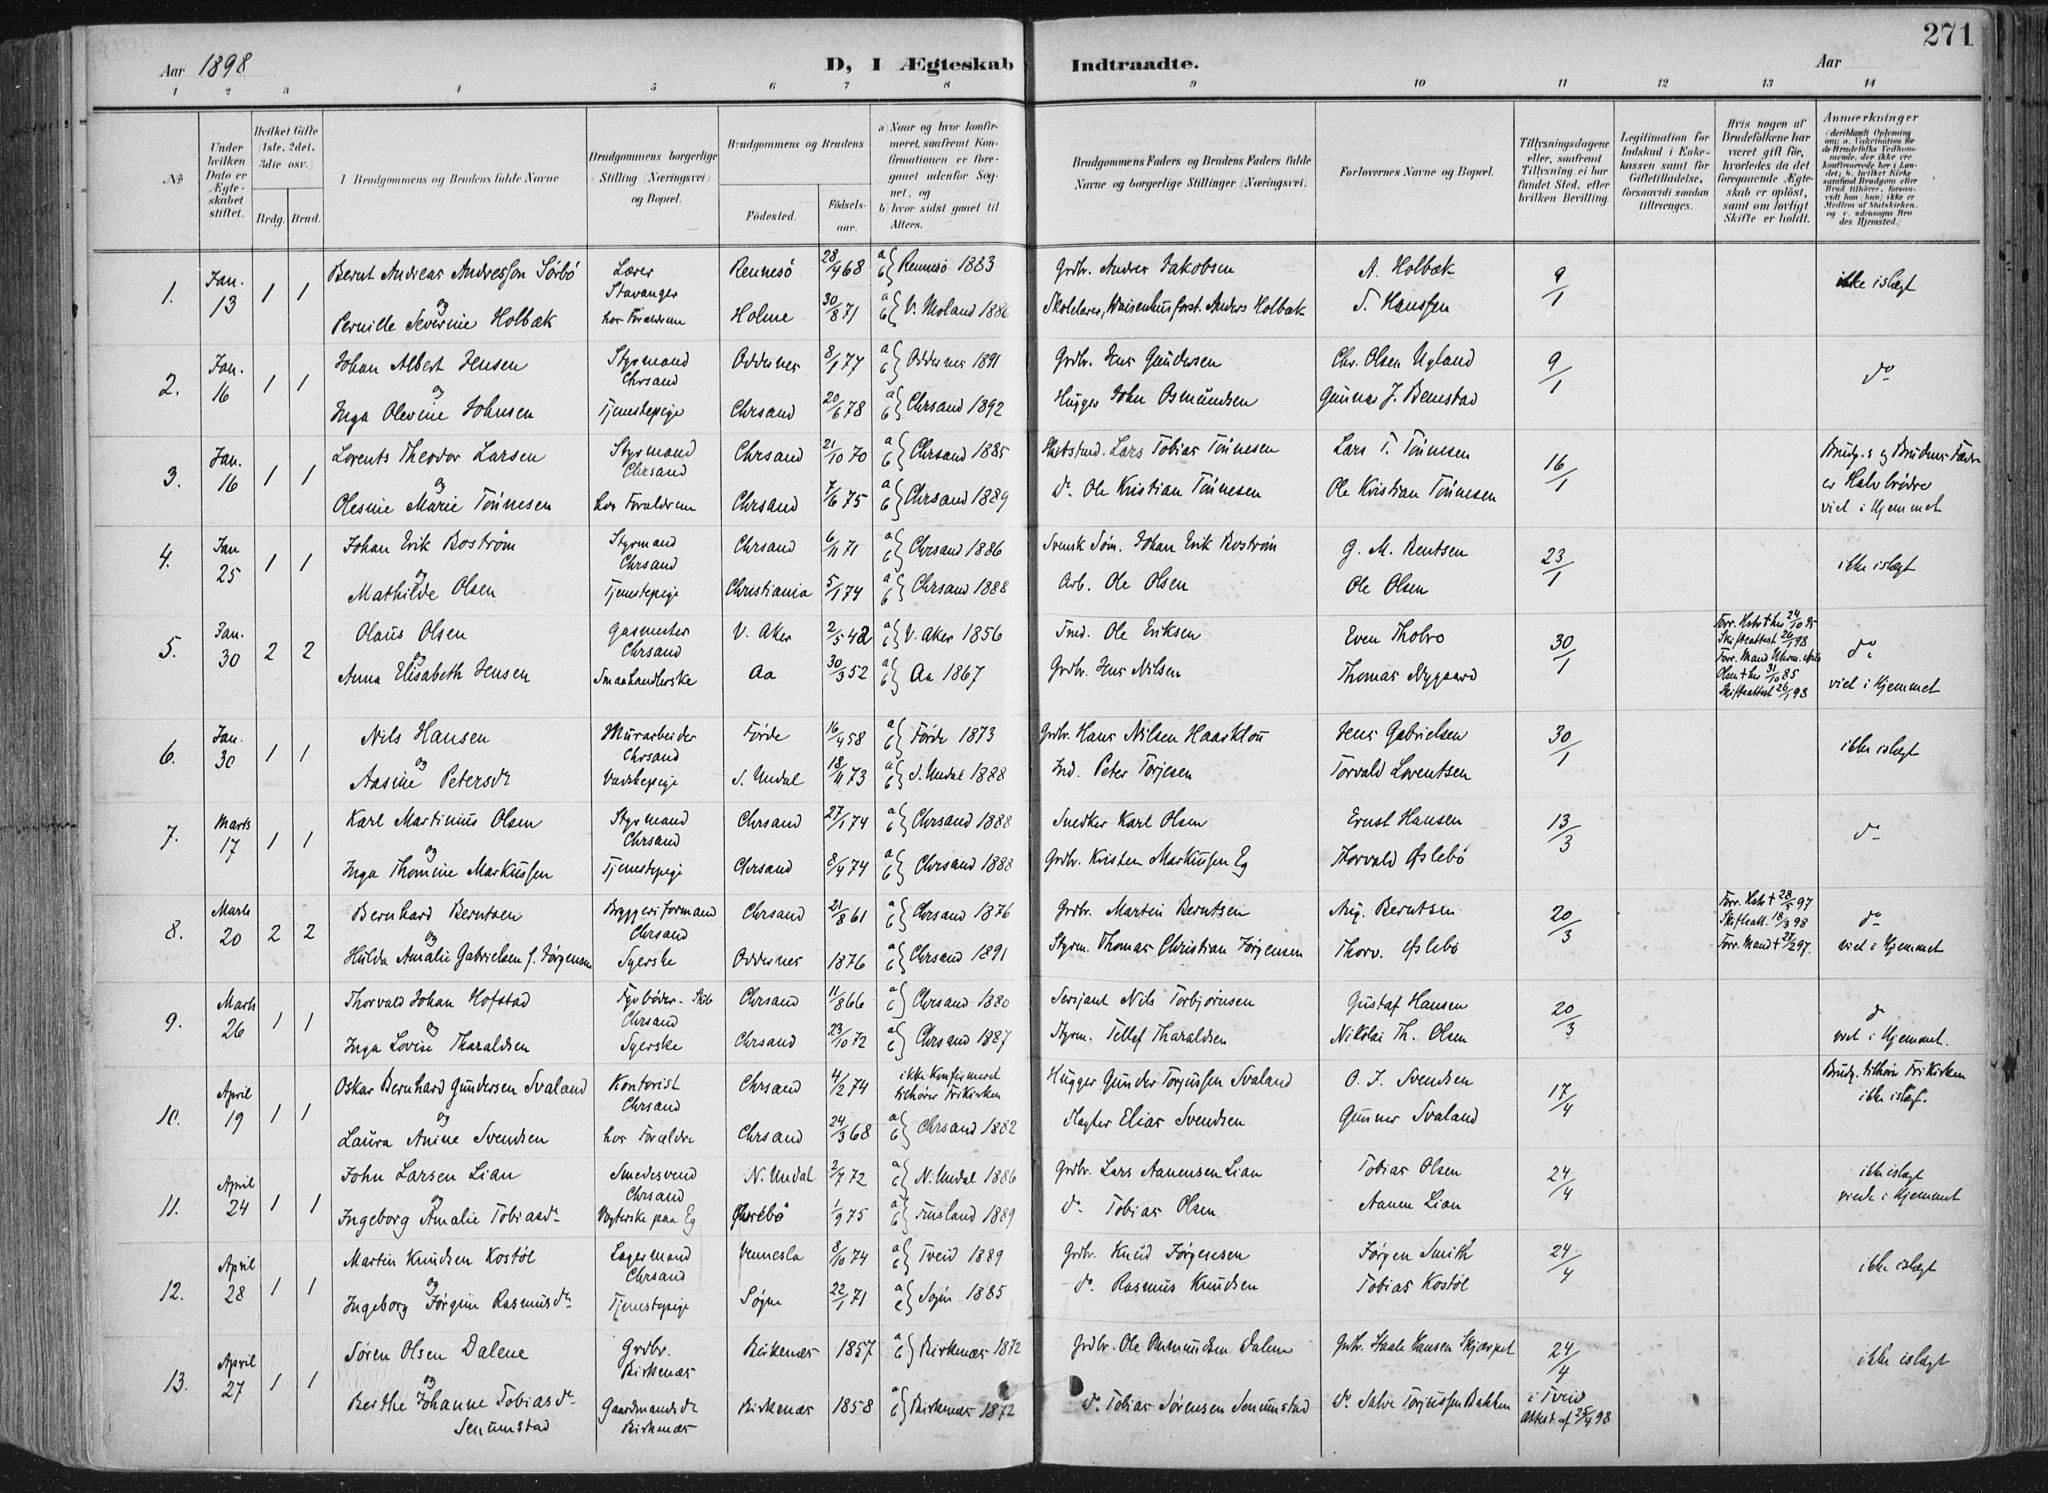 271
Aar 1898
D, I Ægteskab Indtraadte.
Aar
1 2 3 4 5 6 7 8 9 10 11 12 13 14
No
Under hvilken Dato er Ægteskabet stiftet.
Hvilket Gifte (1ste, 2det, 3die osv.)
Brdg. Brud.
Brudgommens og Brudens fulde Navne
Brudgommens borgerlige Stilling (Næringsvei) og Bopæl.
Brudgommens og Brudens
Fødested. Fødselsaar.
a) Naar og hvor konfirmeret, saafremt Konfirmationen er foregaaet udenfor Sognet, og
b) hvor sidst gaaet til Alters.
Brudgommens Faders og Brudens Faders fulde Navne og borgerlige Stillinger (Næringsvei)
Forlovernes Navne og Bopæl.
Tillysningsdagene eller, saafremt Tillysning ei har fundet Sted, efter hvilken Bevilling.
Legitimation for Indskud i Enkekassen samt for Giftetilladelse, forsaavidt saadan tiltrænges.
Hvis nogen af Brudefolkene har været gift før, hvorledes da det foregaaende Ægteskab er opløst, samt om lovligt Skifte er holdt.
Anmærkninger
1. Jan. 13 1 1 Bernt Andreas Andressen Sørbø Lærer Stavanger Rennesø 28/4 68 a b Rennesø 1883 Grdbr. Anders Jakobsen A. Holbæk 9/1 ikke islægt
og
Pernille Severine Holbæk hos Forældrene Holme 30/8 71 a b V. Moland 1886 Skolelærer, Waisenhusforst. Anders Holbæk S. Hanssen
2. Jan. 16 1 1 Johan Albert Jensen Styrmand Chrsand Oddernes 8/1 77 a b Oddernes 1891 Grdbr. Jens Gundersen Chr. Olsen Ugland 9/1 do
og
Inga Olevine Johnsen Tjenestepige Chrsand 20/6 78 a b Chrsand 1892 Hugger John Osmundsen Gunnar J. Benestad
3. Jan. 16 1 1 Lorents Theodor Larsen Styrmand Chrsand Chrsand 21/10 70 a b Chrsand 1885 Lars Tobias Tønnesen Lars T. Tønnesen 16/1 Brudg.s og Brudens Fædre er Halvbrødre
og
Olesine Marie Tønnesen hos Forældrene Chrsand 7/6 75 a b Chrsand 1889 do Ole Kristian Tønnesen Ole Kristian Tønnesen viet i Hjemmet
4. Jan 25 1 1 Johan Erik Bostrøm Styrmand Chrsand Chrsand 6/11 71 a b Chrsand 1886 Svensk Søm. Johan Erik Bostrøm G. M. Bentsen 23/1 ikke islægt
og
Mathilde Olsen Tjenestepige Christiania 5/1 74 a b Chrsand 1888 Arb. Ole Olsen Ole Olsen
5. Jan. 30 2 2 Olaus Olsen Gasmester Chrsand V. Aker 2/5 42 a b V. Aker 1856 Ind. Ole Eriksen Even Tholvo 30/1 do
og
Anna Elisabeth Jensen Smaahandlerske Aa 30/3 52 a b Aa 1867 Grdbr. Jens Nilsen Thomas Nygaard viet i Hjemmet
6. Jan. 30 1 1 Nils Hansen Murarbeider Chrsand Førde 16/4 58 a b Førde 1873 Grdbr. Hans Nilsen Haarklou Jens Gabrielsen 30/1 ikke islægt
og
Aasine Petersdr Vaskepige S. Undal 18/11 73 a b S. Undal 1888 Ind. Peter Torjesen Torvald Lorentsen
7. Marts 17 1 1 Karl Martinius Olsen Styrmand Chrsand Chrsand 27/1 74 a b Chrsand 1888 Snedker Karl Olsen Ernst Hansen 13/3 do
og
Inga Thomine Markussen Tjenestepige Chrsand 8/4 74 a b Chrsand 1888 Grdbr. Kristen Markussen Eg Thorvald Øslebø
8. Marts 20 2 2 Bernhard Berntsen Bryggeriformand Chrsand Chrsand 21/8 61 a b Chrsand 1876 Grdbr. Martin Berntsen Aug. Berntsen 20/3 do
og
Hulda Amalie Gabrielsen f. Jørgensen Syerske Oddernes 1876 a b Chrsand 1891 Styrm. Thomas Christian Jørgensen Thorv. Øslebø viet i Hjemmet
9. Marts 26 1 1 Thorvald Johan Hofstad Chrsand Chrsand 11/8 66 a b Chrsand 1880 Sersjant Nils Torbjørnsen Gustaf Hansen 20/3
og
Inga Lovise Tharaldsen Syerske Chrsand 23/10 72 a b Chrsand 1887 Styrm. Tellef Tharaldsen Nikolai Th. Olsen viet i Hjemmet.
10. April 19 1 1 Oskar Bernhard Gundersen Svaland Kontorist Chrsand Chrsand 4/2 74 ikke Konfirmeret tilhører Frikirken Hugger Gunder Torjussen Svaland O. J. Svendsen 17/4 Brudg. tilhør. Frikirken ikke islægt.
og
Laura Anine Svendsen hos Forældre Chrsand 24/3 68 a b Chrsand 1882 Slagter Elias Svendsen Gunner Svaland
11. April 24 1 1 John Larsen Lian Smedesvend Chrsand N. Undal 2/7 72 a b N. Undal 1886 Grdbr. Lars Aanensen Lian Tobias Olsen 24/4 ikke islægt viede i Hjemmet
og
Ingeborg Amalie Tobiasdr Vogterske paa Eg 1/9 75 a b Finsland 1889 do Tobias Olsen Aanen Lian
12. April 28 1 1 Martin Knudsen Kostøl Lagermand Chrsand Vennesla 8/10 74 a b Tveid 1889 Grdbr. Knud Jørgensen Jørgen Smith 24/4 ikke islægt
og
Ingeborg Jørgine Rasmusdr Tjenestepige Søgne 22/1 71 a b Søgne 1885 do Rasmus Knudsen Tobias Kostøl
13. April 27 1 1 Søren Olsen Dalene Grdbr. Birkenæs Birkenæs 1857 a b Birkenæs 1872 Grdbr. Ole Aamundsen Dalene Grdbr. Staale Hansen Skjæspet 24/4 ikke islægt
og
Berthe Johanne Tobiasdr Senumstad Gaardmandsdr Birkenæs Birkenæs 1858 a b Birkenæs 1872 do Tobias Sørensen Senumstad do Salve Torjussen Bakken i Tveid Attest af 25/4 98